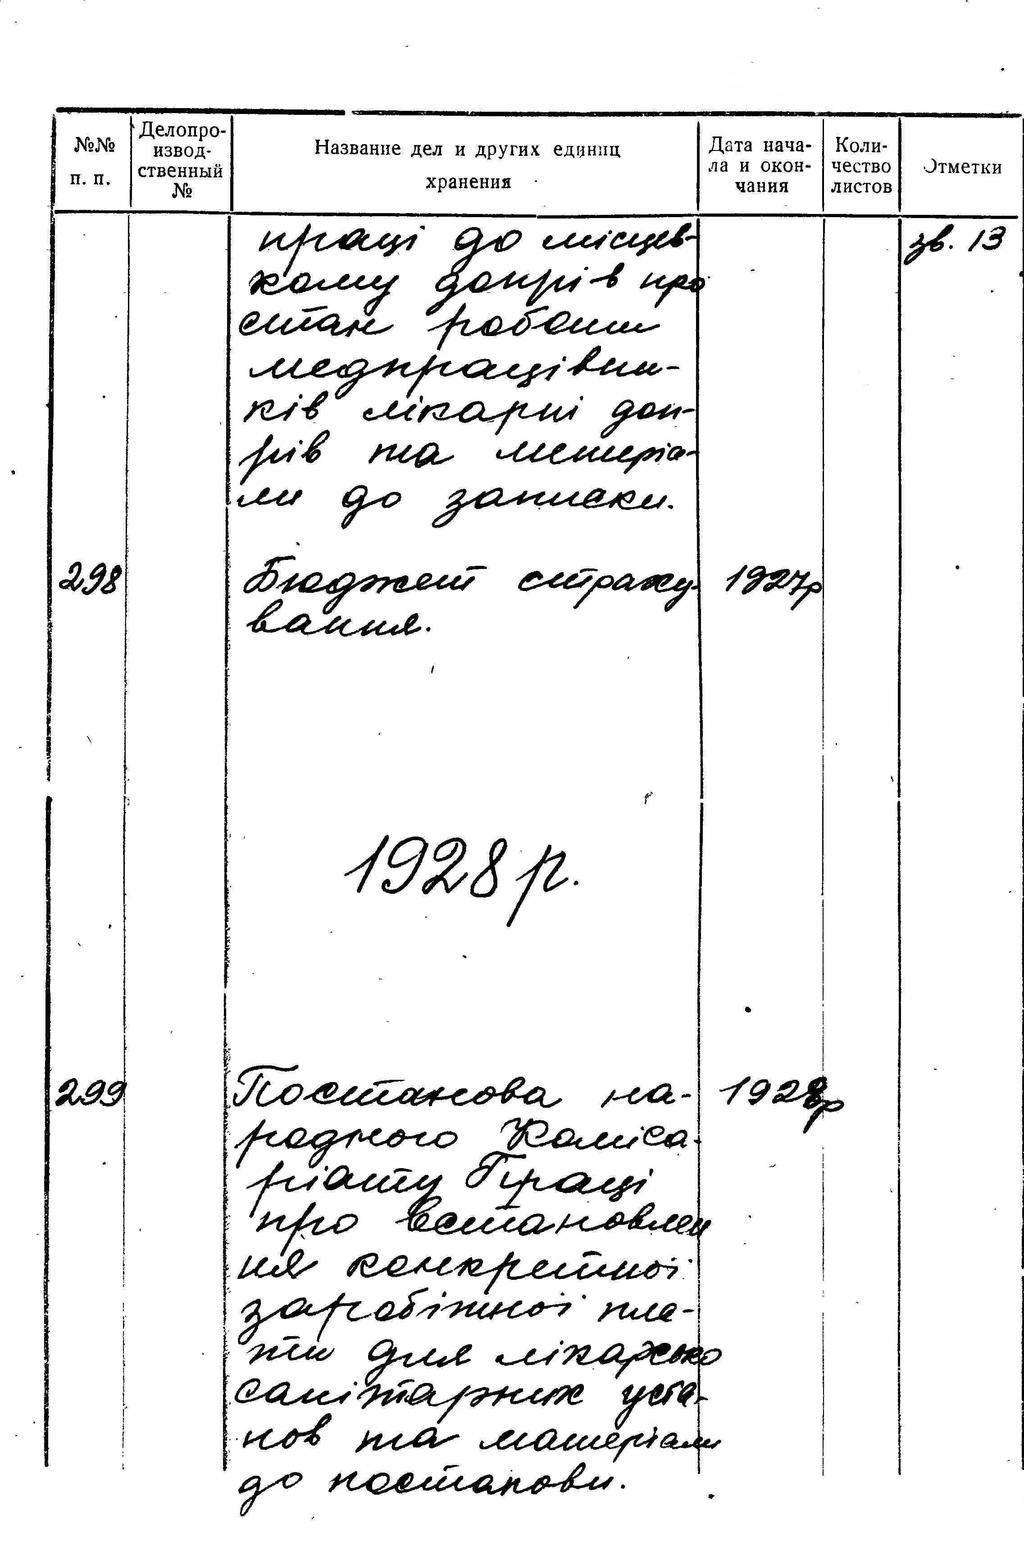 №№
п. п.
Делопро-
извод-
ственный
№
Название дел и других единиц
хранения
Дата нача-
ла и окон-
чания
Коли-
чество
листов
Отметки
праці до місцев-
кому допрів про
стан роботи
медпрацівни-
ків лікарні доп-
рів та метеріа-
ли до записки.
зв. 13
298
Бюджет страху-
вання.
1927р
1928 р.
299
Постанова на-
родного Коміса-
ріату Праці
про встановлен
ня конкретної
заробітної пла-
ти для лікарсько
санітарних уста-
нов та матеріали
до постанови.
1928р